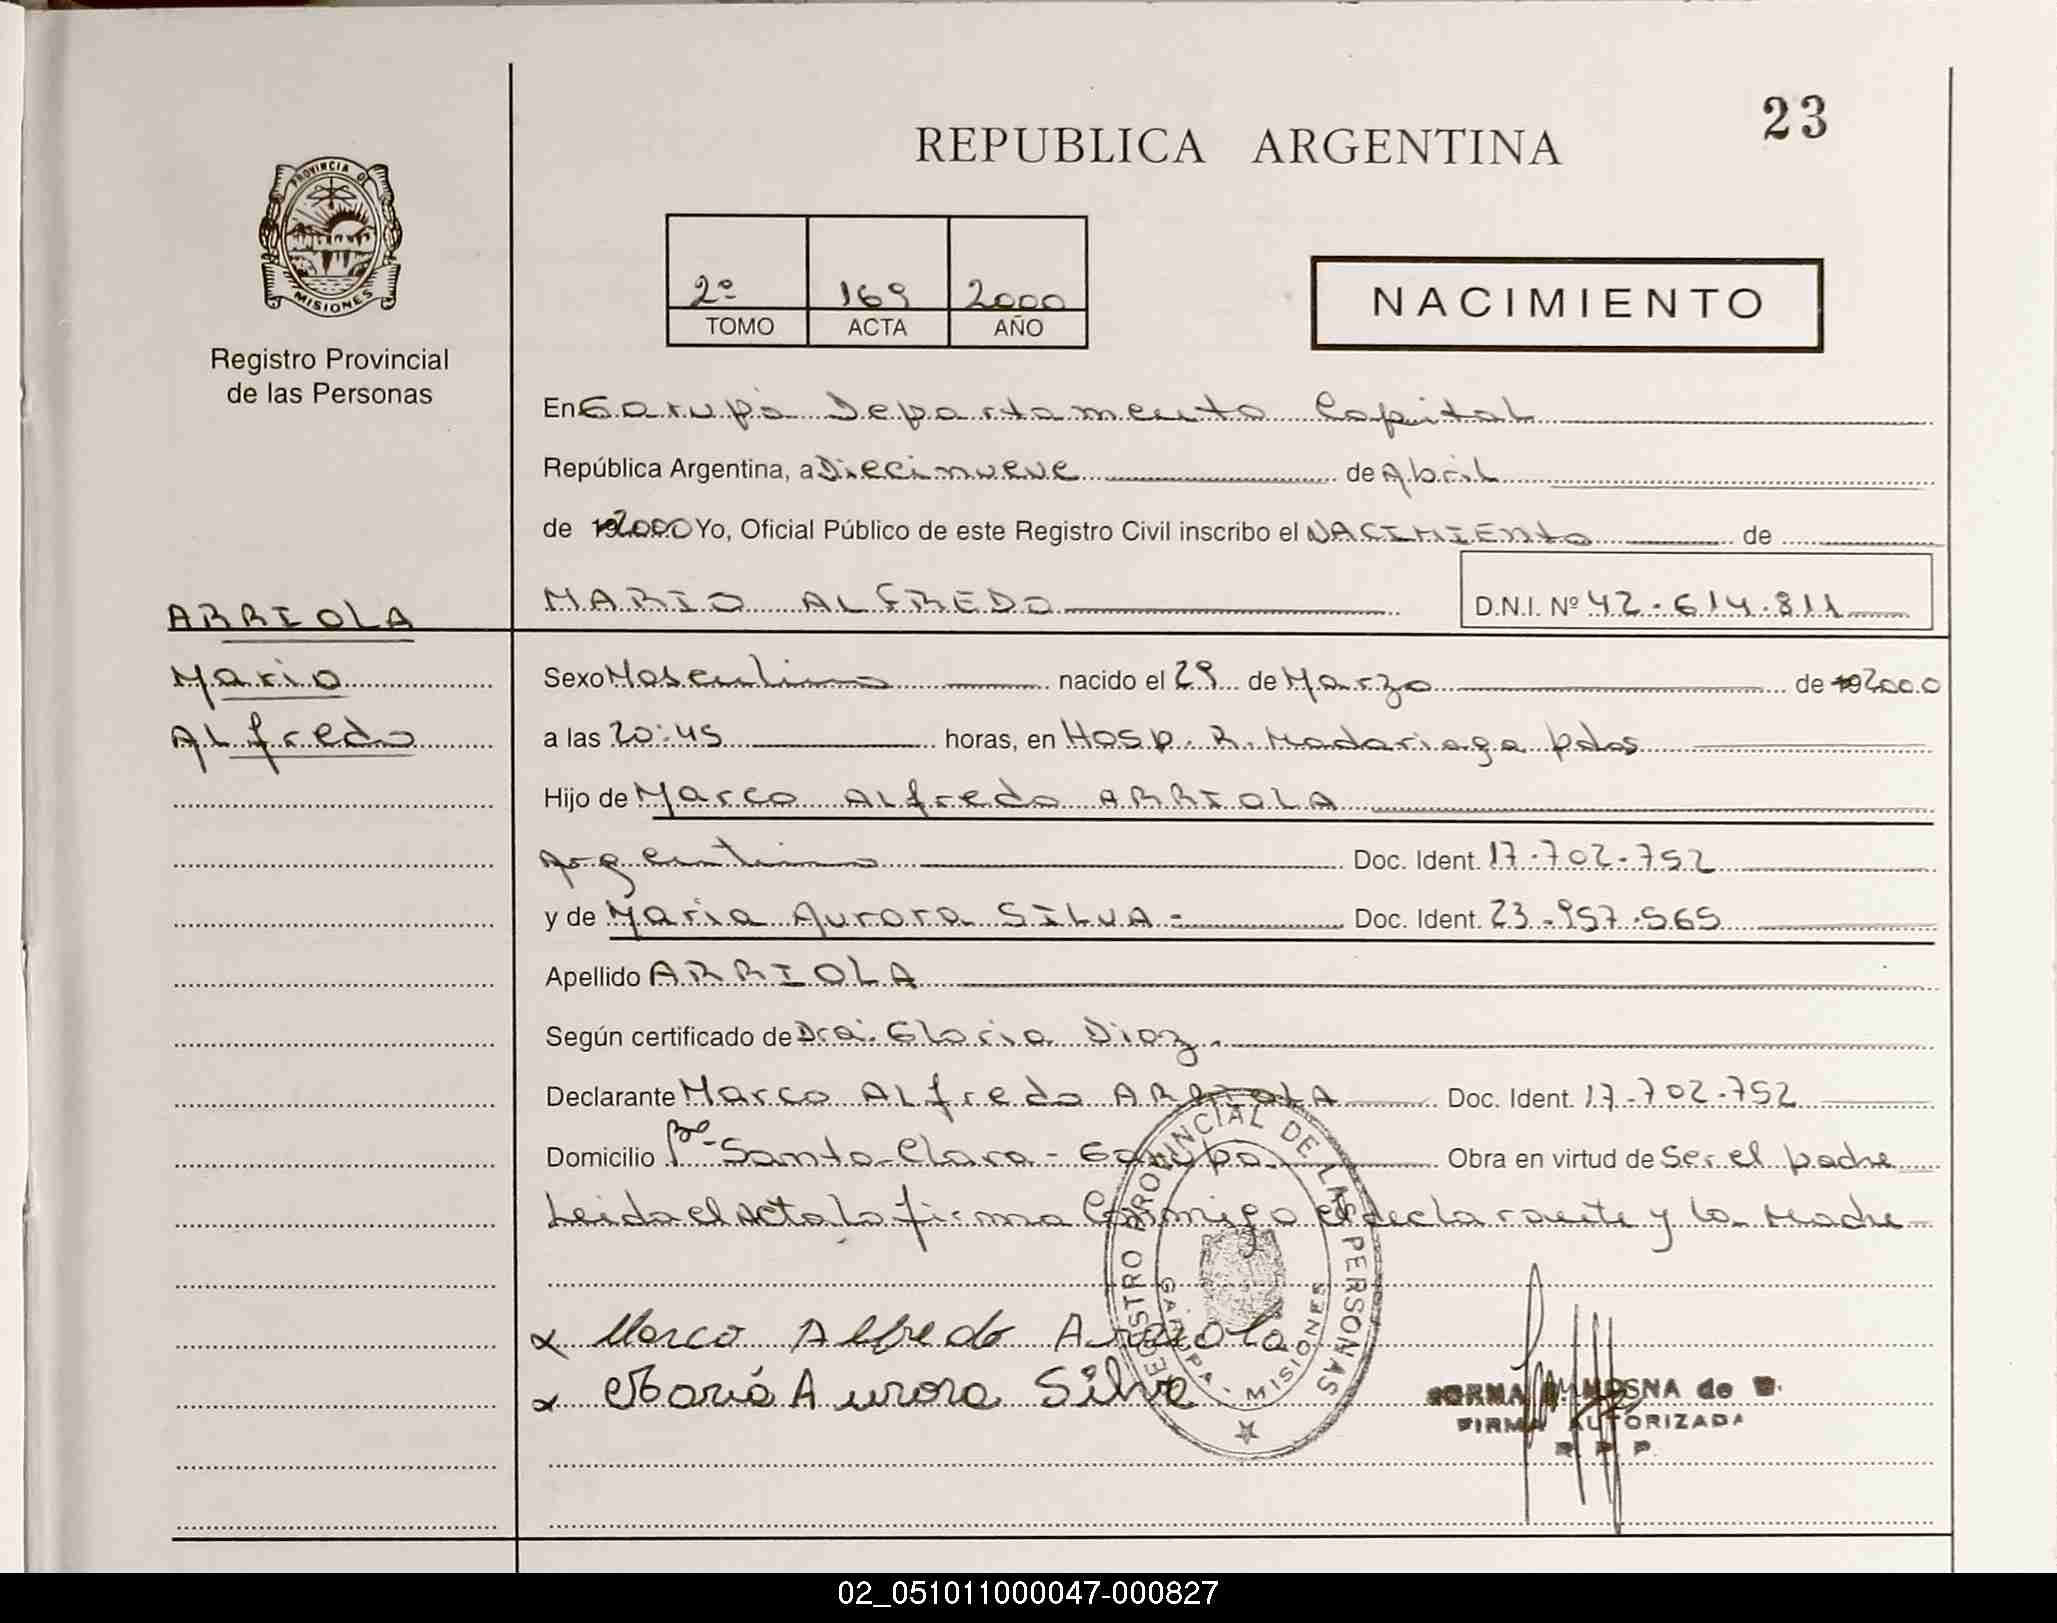 23
REPUBLICA ARGENTINA
PROVINCIA DE
MISIONES
Registro Provincial
de las Personas
2º 169 2000
TOMO ACTA AÑO
NACIMIENTO
En Garupá Departamento Capital
República Argentina, a Diecinueve de Abril
de 2000 Yo, Oficial Público de este Registro Civil inscribo el NACIMIENTO de
MARIO ALFREDO D.N.I. Nº 42.614.811
ARRIOLA
Mario
Alfredo
Sexo Masculino nacido el 29 de Marzo de 2000
a las 20:45 horas, en Hosp. R. Madariaga pdas
Hijo de Marco Alfredo ARRIOLA
Argentino Doc. Ident. 17.702.752
y de Maria Aurora SILVA Doc. Ident. 23.957.565
Apellido ARRIOLA
Según certificado de Dra. Gloria Diaz.
Declarante Marco Alfredo ARRIOLA Doc. Ident. 17.702.752
Domicilio Santa Clara - Garupa Obra en virtud de Ser el padre
Leida el Acta la firma Conmigo el declarante y la Madre
Marco Alfredo Arriola
Maria Aurora Silva
REGISTRO PROVINCIAL DE LAS PERSONAS
GARUPA - MISIONES
de
FIRMA AUTORIZADA
R. P. P.
02_051011000047-000827